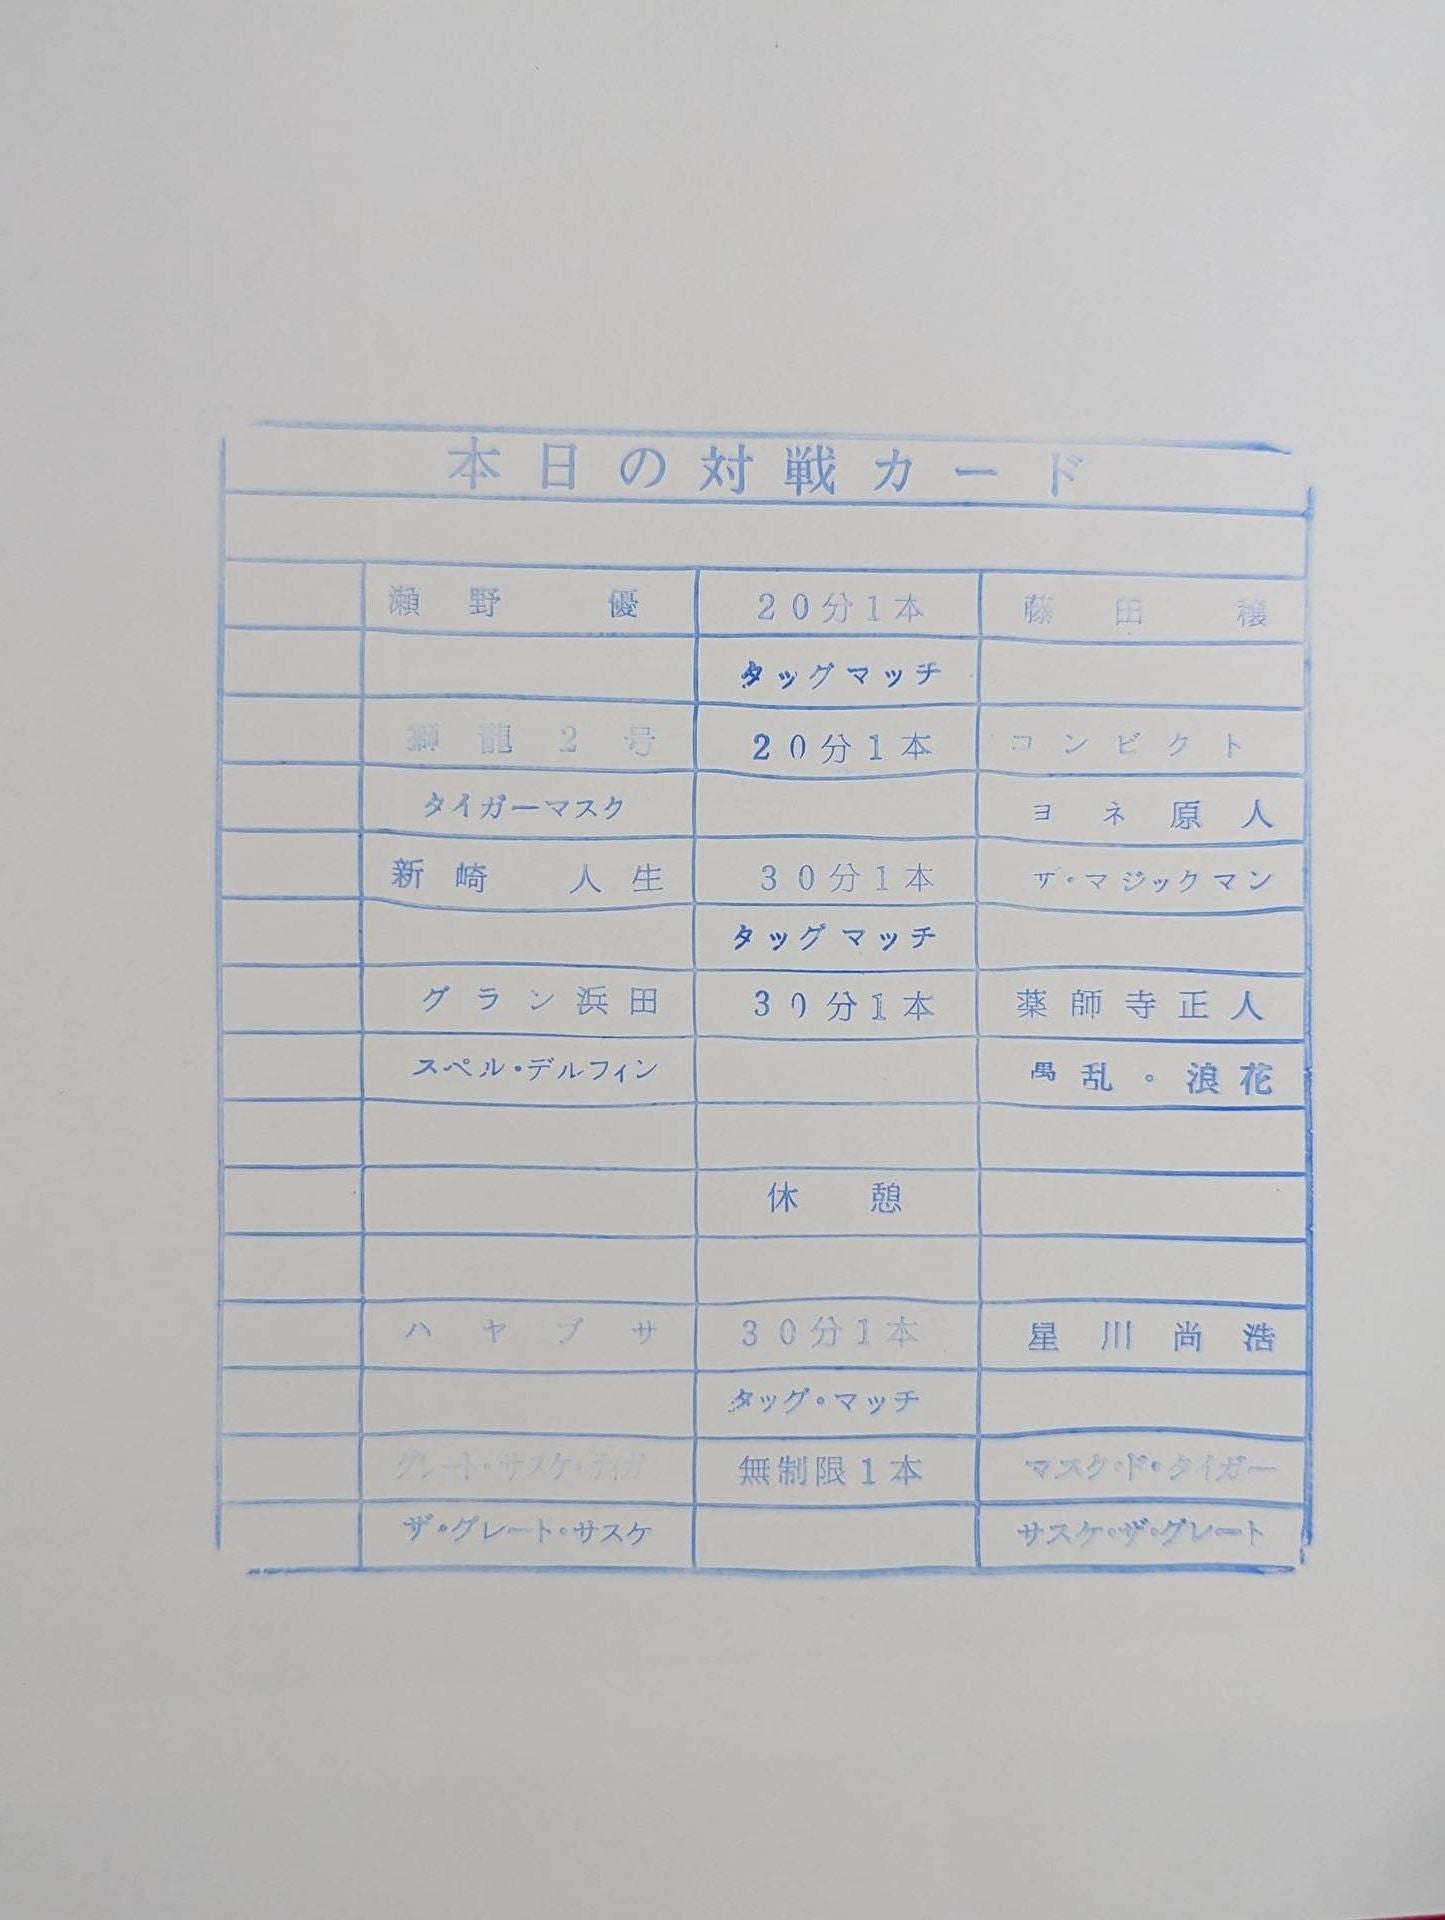 本日の対戦カード
瀬野 優 20分1本 藤田 穣
タッグマッチ
獅龍2号 20分1本 コンビクト
タイガーマスク ヨネ原人
新崎 人生 30分1本 ザ・マジックマン
タッグマッチ
グラン浜田 30分1本 薬師寺正人
スペル・デルフィン 愚乱・浪花
休憩
ハヤブサ 30分1本 星川尚浩
タッグ・マッチ
グレート・サスケ・ティガ 無制限1本 マスク・ド・タイガー
ザ・グレート・サスケ サスケ・ザ・グレート